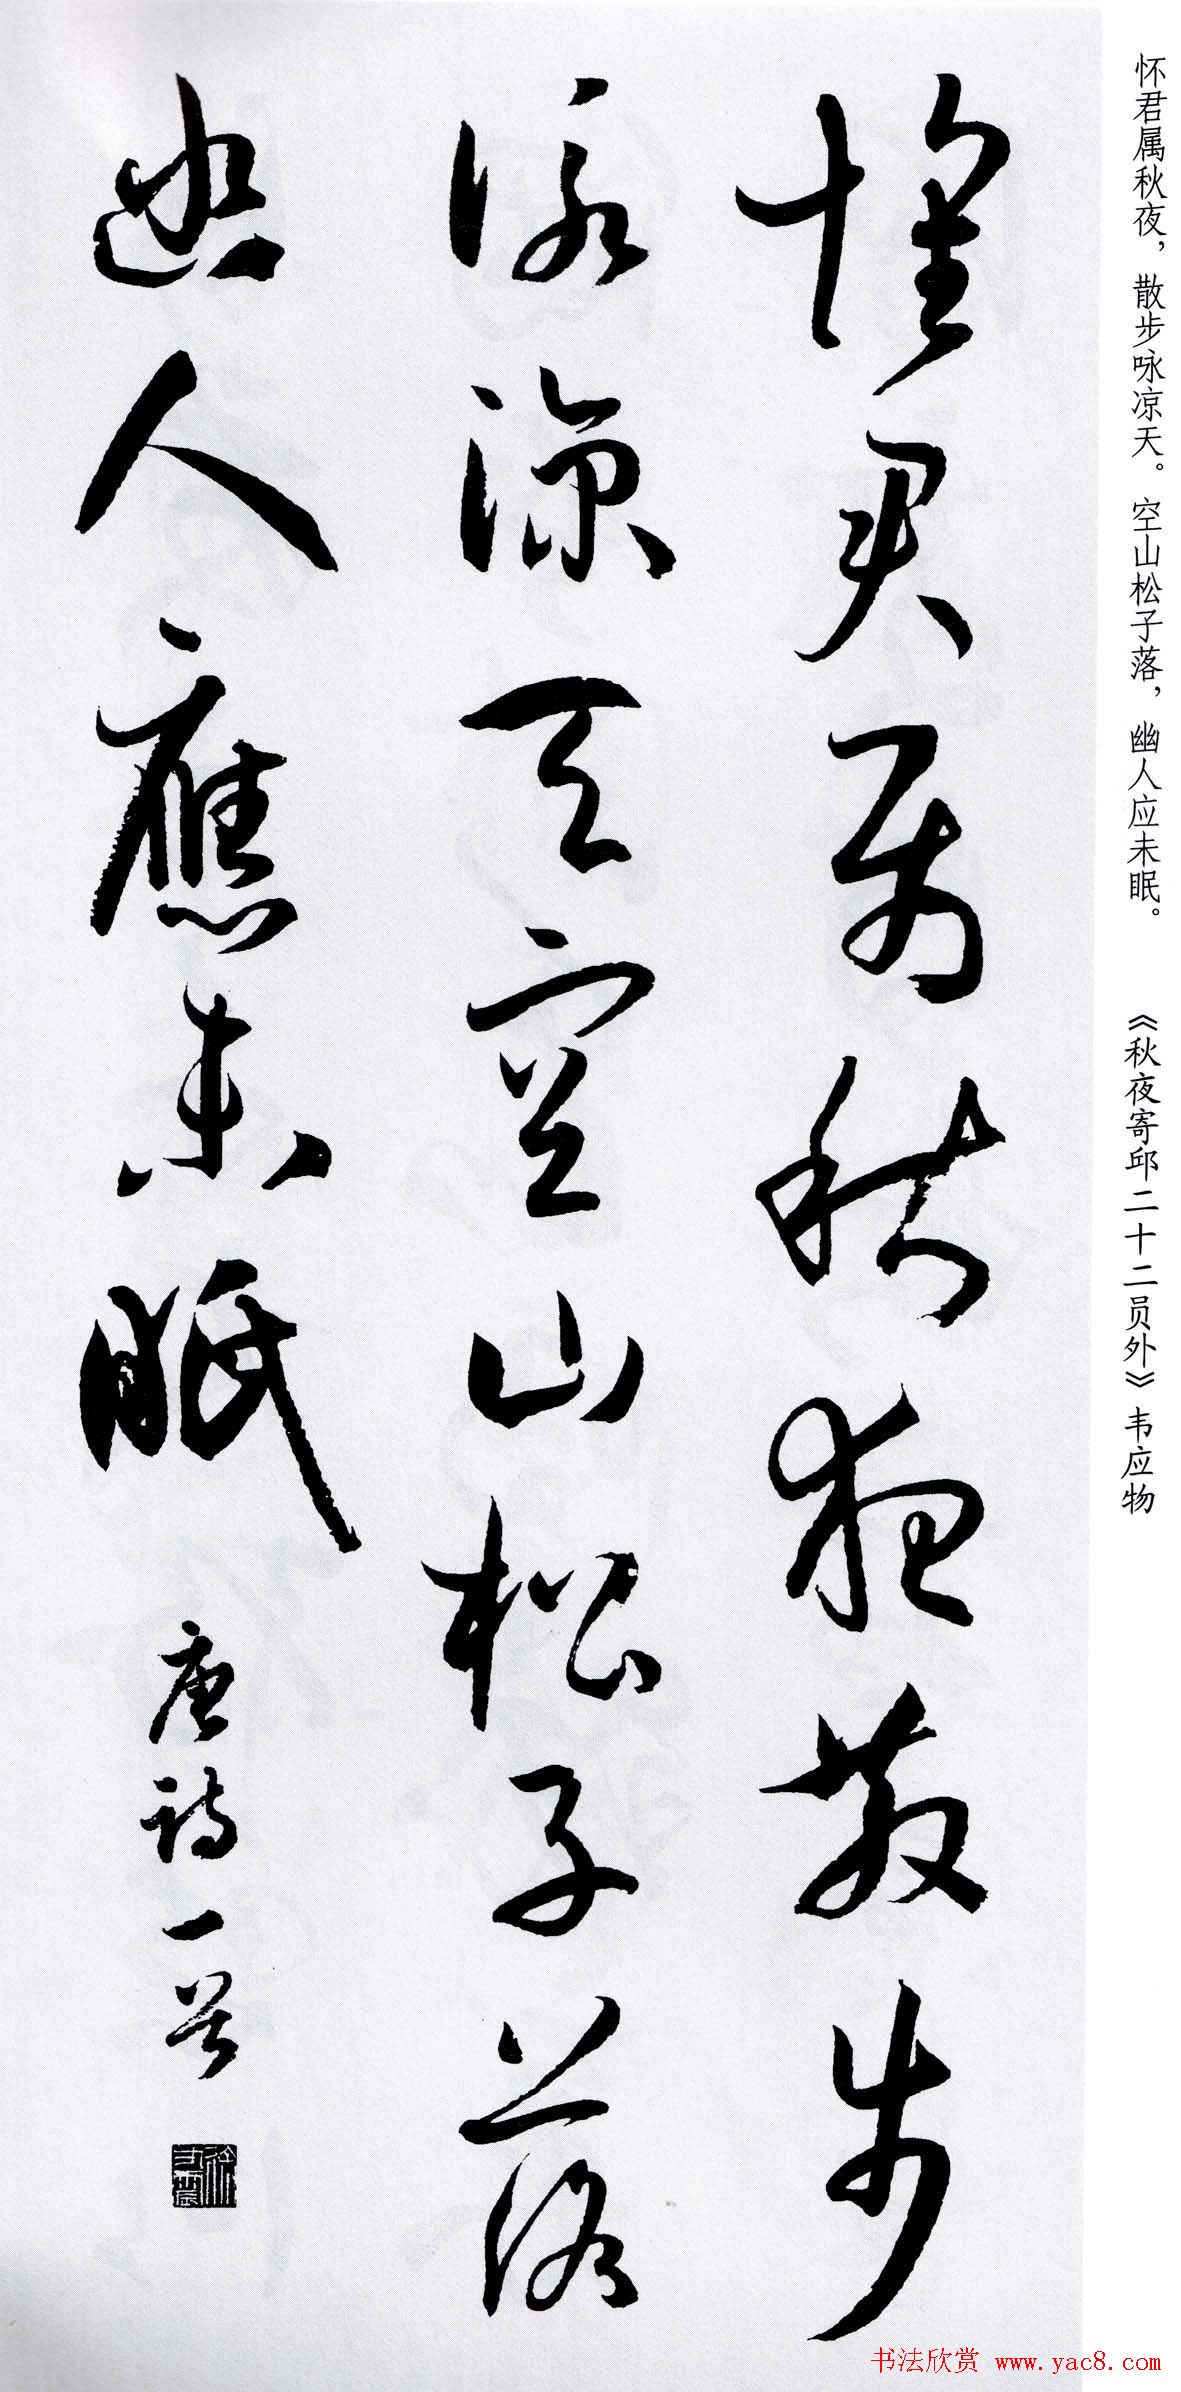 怀君属秋夜，散步咏凉天。空山松子落，幽人应未眠。 《秋夜寄邱二十二员外》韦应物
懷君属秋夜散步
詠涼天空山松子落
幽人應未眠 唐詩一首
书法欣赏 www.yac8.com